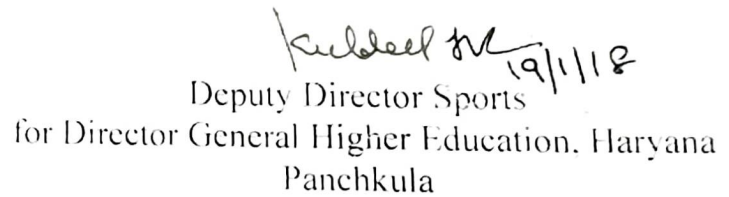 Kuldeep
19/1/18
Deputy Director Sports
for Director General Higher Education, Haryana
Panchkula